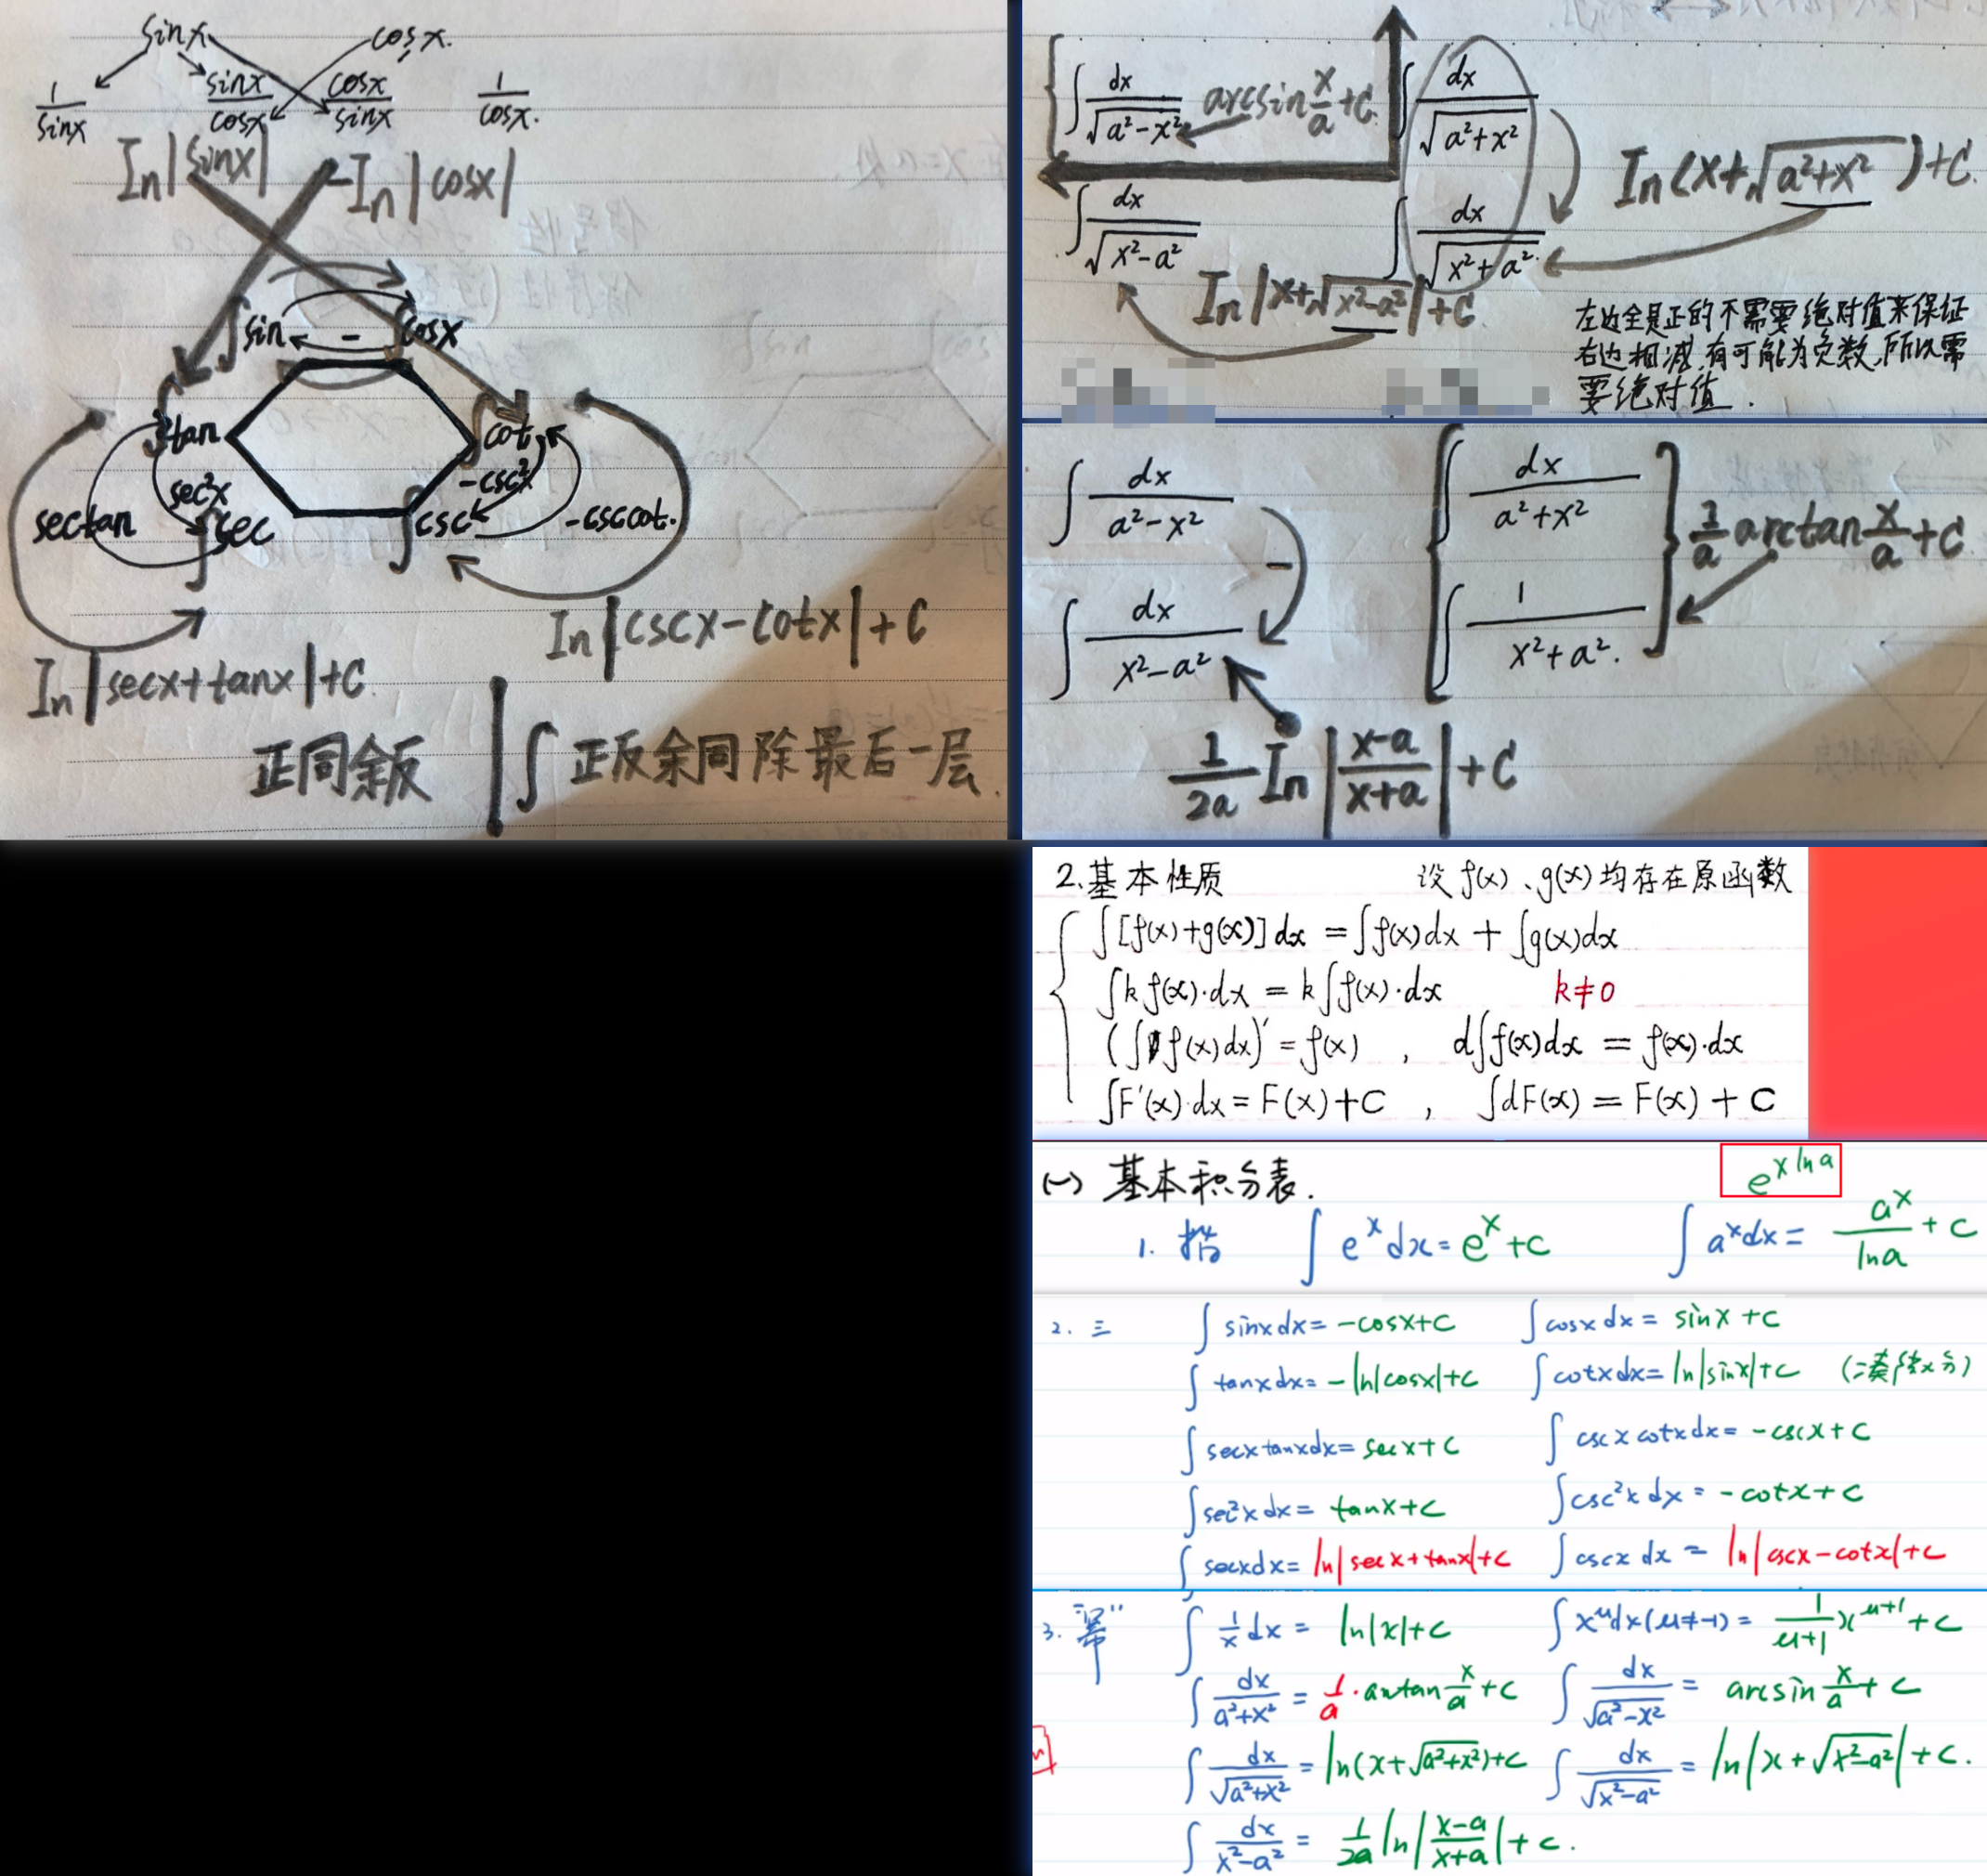 sinx cosx.
1/sinx sinx/cosx cosx/sinx 1/cosx.
In|sinx| -In|cosx|
∫sin - cosx
∫tan ∫cot
sec²x -csc²x
sectan ∫sec ∫csc -csccot.
In|cscx-cotx|+C
In|secx+tanx|+C
正同余反 | ∫正反余同除最后一层.
∫dx/√(a²-x²) arcsin x/a +C. ∫dx/√(a²+x²)
In(x+√(a²+x²))+C.
∫dx/√(x²-a²) ∫dx/√(x²+a²)
In|x+√(x²-a²)|+C
左边全是正的不需要绝对值来保证
右边相减,有可能为负数,所以需
要绝对值.
∫dx/(a²-x²) ∫dx/(a²+x²)
- 1/a arctan x/a +C
∫dx/(x²-a²) ∫1/(x²+a²).
1/2a In|(x-a)/(x+a)|+C
2.基本性质 设f(x)、g(x)均存在原函数
∫[f(x)+g(x)]dx=∫f(x)dx+∫g(x)dx
∫kf(x)·dx=k∫f(x)·dx k≠0
(∫f(x)dx)'=f(x) , d∫f(x)dx=f(x)·dx
∫F'(x)·dx=F(x)+C , ∫dF(x)=F(x)+C
(一)基本积分表. e^(x ln a)
1. 指 ∫e^x dx=e^x+C ∫a^x dx=a^x/lna+C
2. 三 ∫sinxdx=-cosx+C ∫cosxdx=sinx+C
∫tanxdx=-ln|cosx|+C ∫cotxdx=ln|sinx|+C
∫secxtanxdx=secx+C ∫cscxcotxdx=-cscx+C
∫sec²xdx=tanx+C ∫csc²xdx=-cotx+C
∫secxdx=ln|secx+tanx|+C ∫cscxdx=ln|cscx-cotx|+C
3. "幂" ∫1/x dx=ln|x|+C ∫x^μdx(μ≠-1)=1/(μ+1) x^(μ+1)+C
∫dx/(a²+x²)=1/a·arctan x/a+C ∫dx/√(a²-x²)=arcsin x/a+C
∫dx/√(a²+x²)=ln(x+√(a²+x²))+C ∫dx/√(x²-a²)=ln|x+√(x²-a²)|+C.
∫dx/(x²-a²)=1/2a ln|(x-a)/(x+a)|+C.